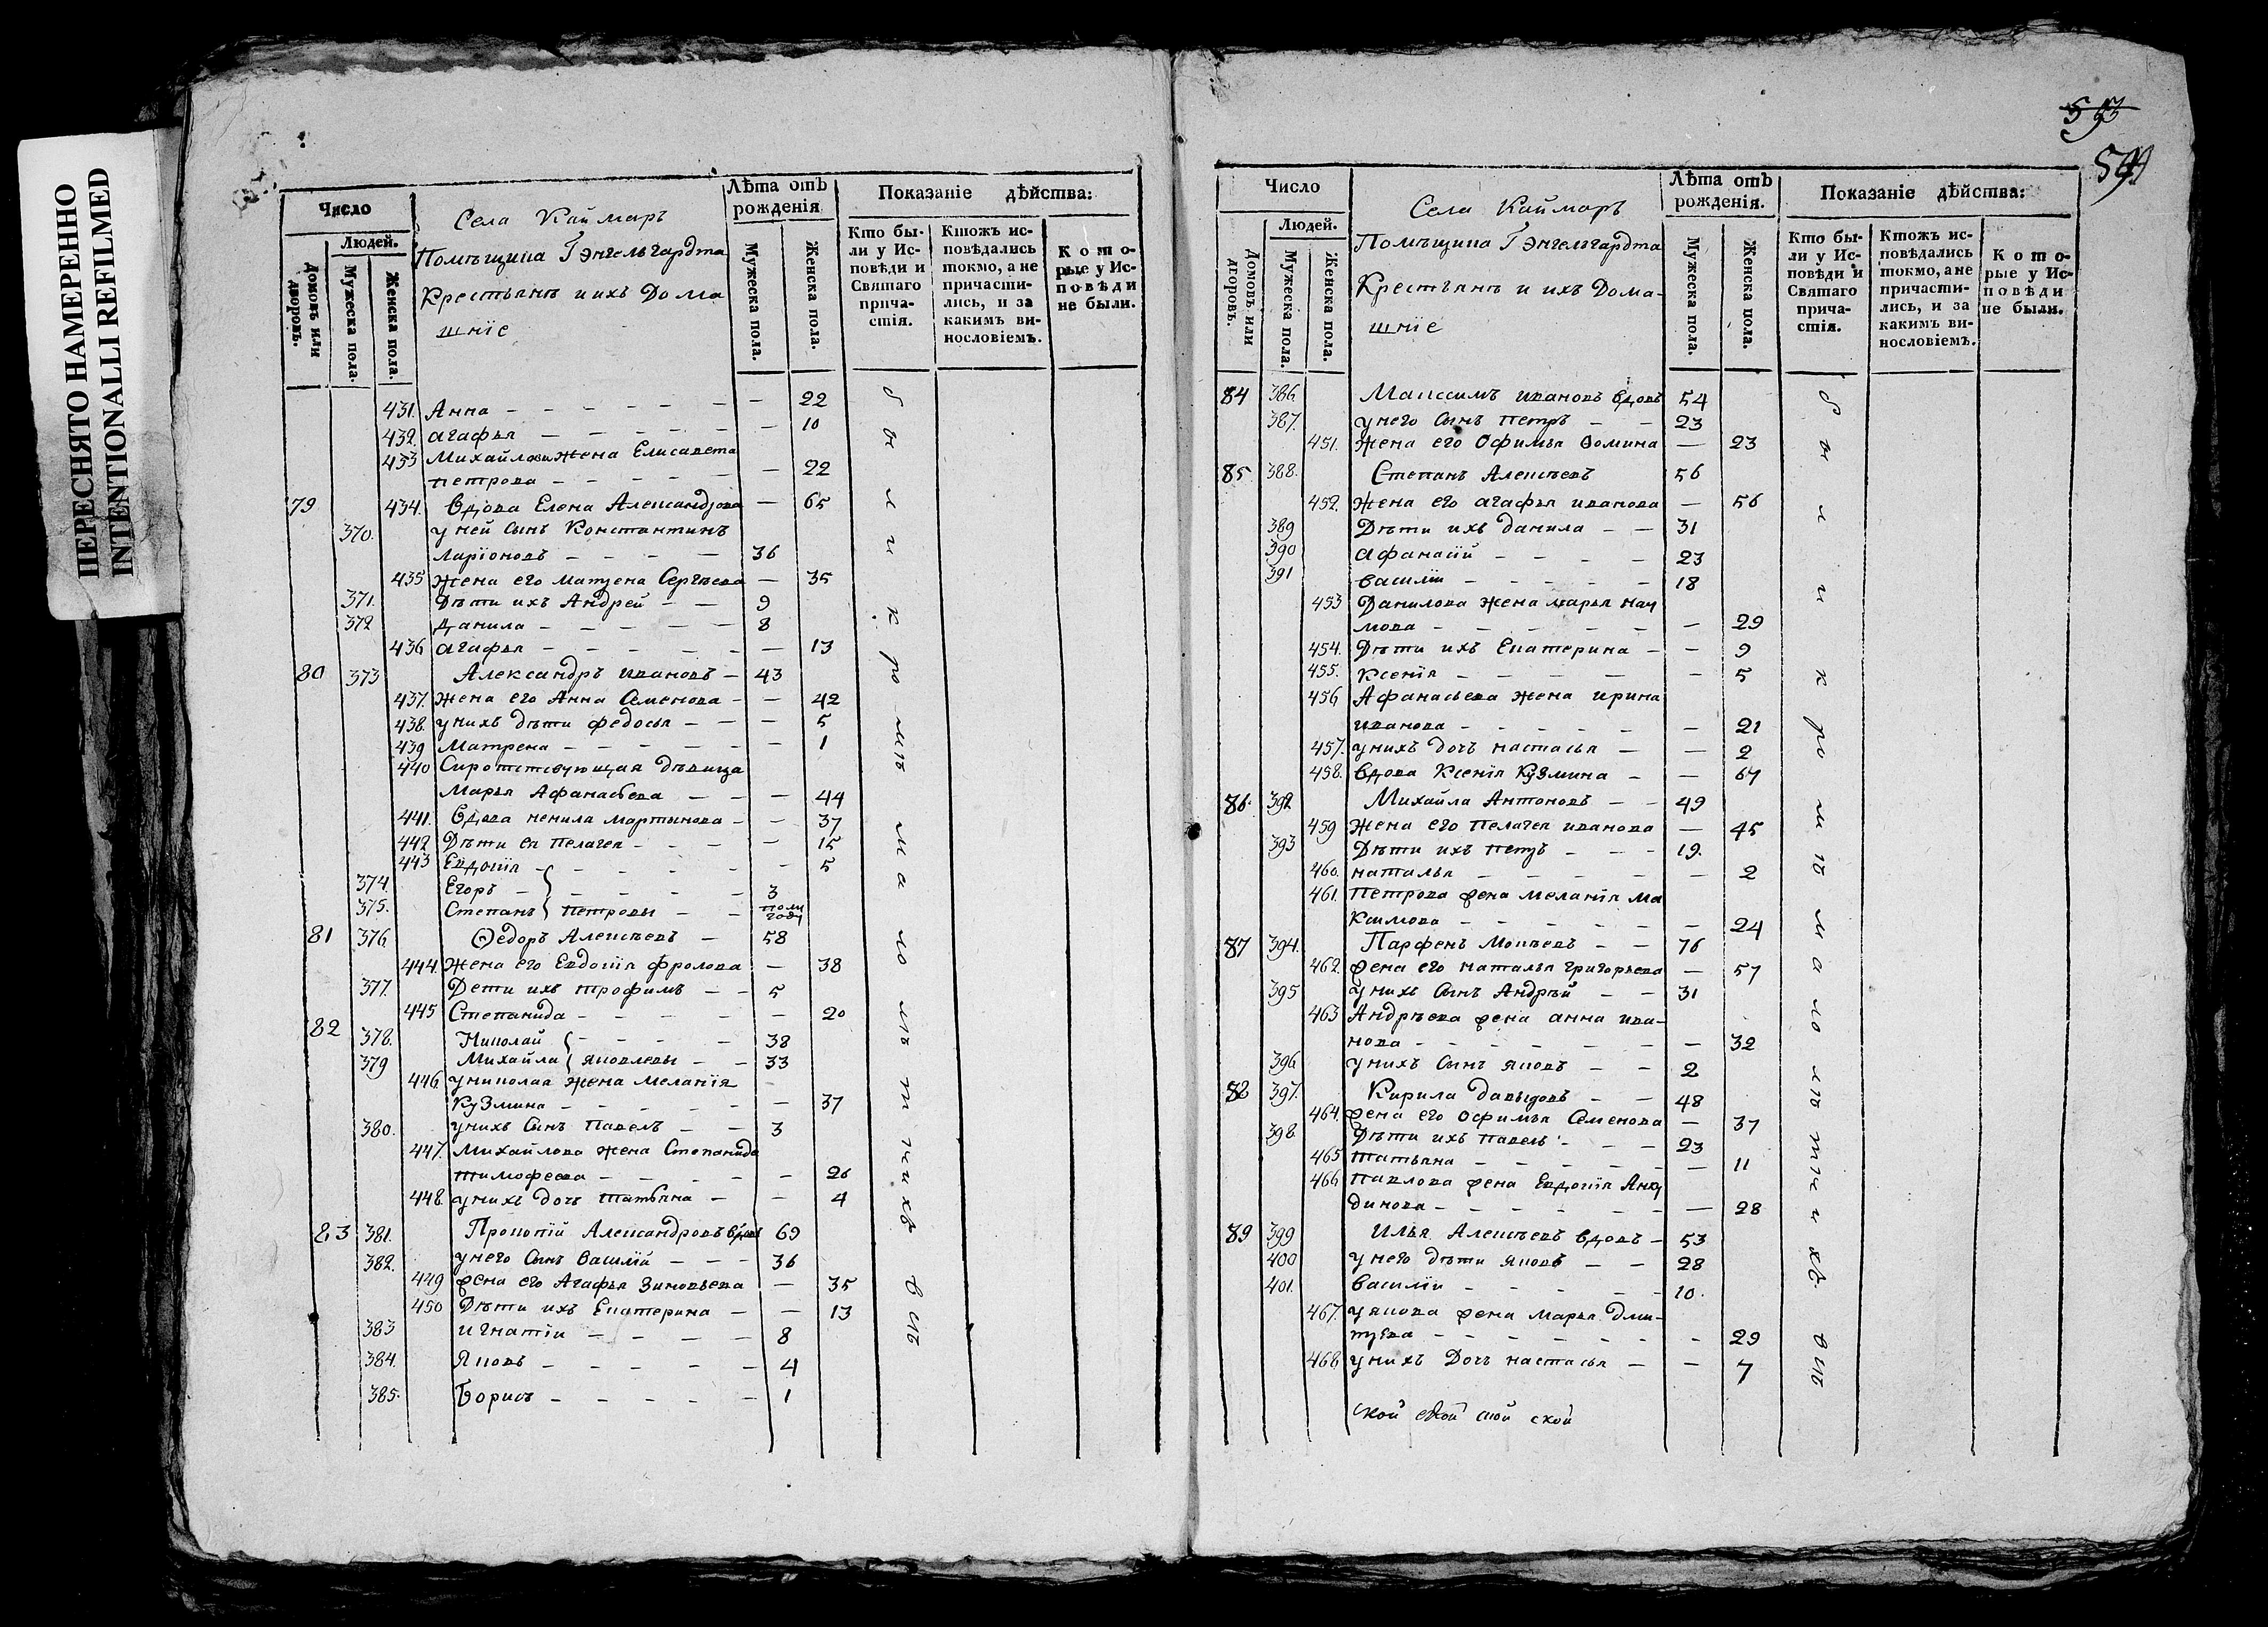 ПЕРЕСНЯТО НАМЕРЕННО
INTENTIONALLI REFILMED
Число
Людей.
Домовъ или дворовъ.
Мужеска пола.
Женска пола.
Села Каймаръ
Помѣщика Гэнгельгардта
Крестьянъ и ихъ Дома
шнїе
Лѣта отъ рожденія
Мужеска пола.
Женска пола.
Показаніе дѣйства:
Кто бы-
ли у Ис-
повѣди и
Святаго
прича-
стія.
Ктожъ ис-
повѣдались
токмо, а не
причасти-
лись, и за
какимъ ви-
нословіемъ.
Кото-
рые у Ис-
повѣди
не были.
431. Анна — — 22
432. агафья — — 10
433 Михайлова жена Елисавета
петрова — — 22
79 434. Вдова Елена Александрова — 65
370. у ней сынъ Константинъ
Ларїоновъ — 36
435 жена его матрена Сергѣева — 35
371. Дѣти ихъ Андрей — 9
372 Данила — 8
436 агафья — — 13
80 373 Александръ ивановъ — 43
437. жена его Анна Семенова — — 42
438. у нихъ дѣти федосья — — 5
439 Матрена — — 1
440 Сиротствующая дѣвица
Марья Афанасьева — — 44
441. Вдова ненила мартынова — — 37
442 Дѣти ея Пелагея — — 15
443 Евдокїя — — 5
374. Егоръ — 3
375. Степанъ петровы — полу году
81 376. Ѳедоръ Алексѣевъ — 58
444. жена его Евдокїя фролова — 38
377. Дети ихъ трофимъ — 5
445 Степанида — — 20
82 378. Николай — 38
379 Михайла яковлевы — 33
446 у николая жена меланїя
кузмина — — 37
380. у нихъ сынъ павелъ — 3
447. михайлова жена Степанида
тимофеева — — 26
448. у нихъ дочь татьяна — — 4
83 381. Прокопїй Александровъ вдовъ 69
382. у него сынъ василїй — 36
449 жена его Агафья Зиновьева — 35
450 Дѣти ихъ Екатерина — — 13
383 игнатїи — 8
384. Яковъ — 4
385. Борисъ — 1
были кромѣ малолѣтнихъ всѣ
593
594
Число
Людей.
Домовъ или дворовъ.
Мужеска пола.
Женска пола.
Села Каймаръ
Помѣщика Гэнгельгардта
Крестьянъ и ихъ Дома-
шнїе
Лѣта отъ рожденія.
Мужеска пола.
Женска пола.
Показаніе дѣйства:
Кто бы-
ли у Ис-
повѣди и
Святаго
прича-
стія.
Ктожъ ис-
повѣдались
токмо, а не
причасти-
лись, и за
какимъ ви-
нословіемъ.
Кото-
рые у Ис-
повѣди
не были.
84 386. Максимъ ивановъ вдовъ 54
387. у него сынъ петръ — 23
451. жена его Офимья Ѳомина — 23
85 388. Степанъ Алексѣевъ 56
452. жена его агафья иванова — 56
389 Дѣти ихъ данила — 31
390 афанасїй — 23
391 василїи — 18
453 Данилова жена марья нау
мова — — 29
454. Дѣти ихъ Екатерина — — 9
455. Ксенїя — — 5
456 Афанасьева жена ирина
иванова — — 21
457. у нихъ дочь настасья — — 2
458. вдова Ксенїя кузмина — — 67
86. 392 Михайла Антоновъ — 49
459 жена его пелагея иванова — 45
393 Дѣти ихъ петръ — 19.
460. наталья — — 2
461. петрова жена меланїя ма
ксимова — — 24
87 394. Парфенъ Мокѣевъ — 76
462. жена его наталья григорьева — 57
395 у нихъ сынъ Андрѣй — 31
463 Андрѣева жена анна ива-
нова — — 32
396 у нихъ сынъ яковъ — 2
82 397. Кирила давыдовъ — 48
464. жена его офимья семенова — 37
398. Дѣти ихъ павелъ — 23
465 татьяна — — 11
466 павлова жена Евдокїя Анку
динова — — 28
89 399 Илья Алексѣевъ вдовъ — 53
400 у него дѣти яковъ — 28
401. василїи — 10.
467. у якова жена марья дми-
трева — — 29
468 у нихъ дочь настасья — — 7
были кромѣ малолѣтнихъ всѣ
ской ской ской ской